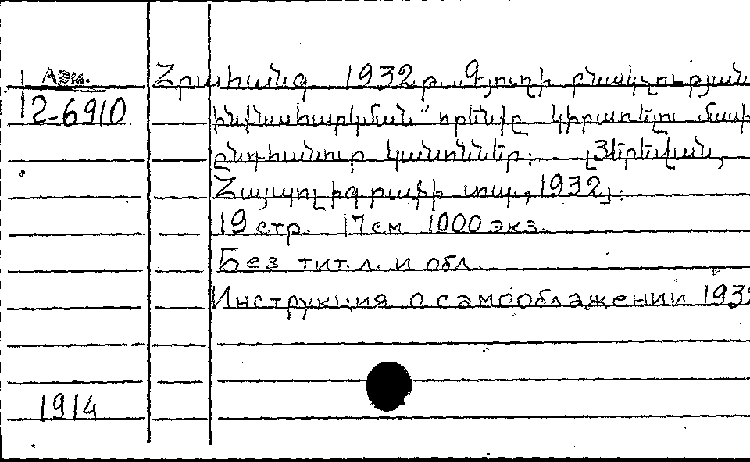 Арм. Հրահանգ 1932 թ. „Գյուղի բնակչության
12-6910 ինքնահարկման" որենքը կիրառելու մասին
ընդհանուր կանոններ: [Յերեվան,
Հայպոլիգրաֆի տպ., 1932]:
19 стр. 17 см 1000 экз.
Без тит. л. и обл.
Инструкция о самооблажении 1932
1914